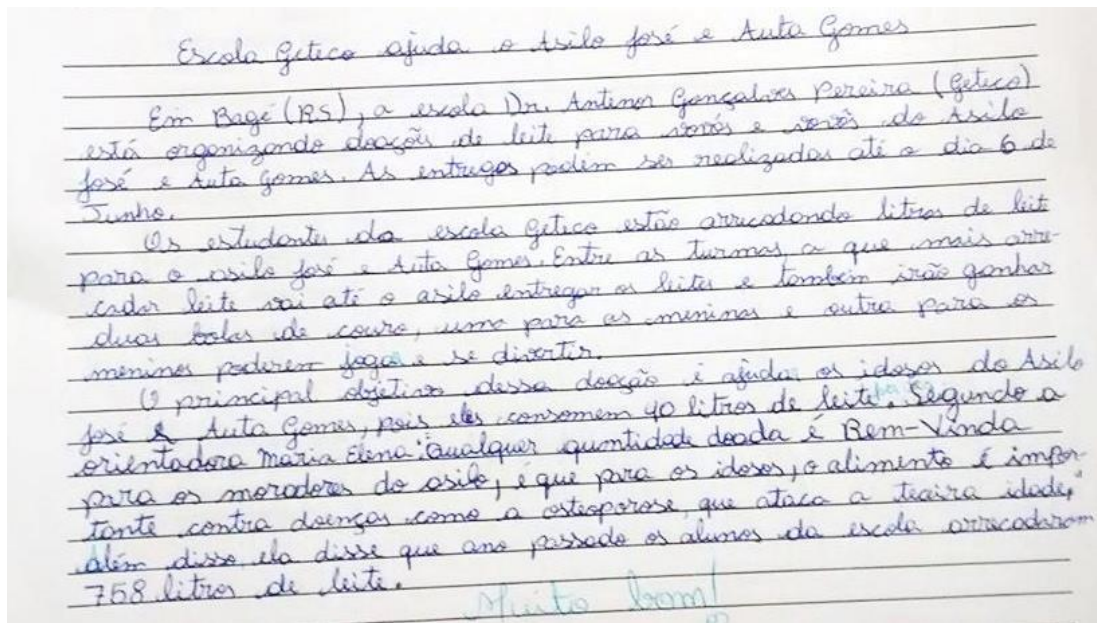 Escola Geteco ajuda o Asilo José e Auta Gomes
Em Bagé (RS), a escola Dr. Antenor Gonçalves Pereira (Geteco)
está organizando doações de leite para vovós e vovôs do Asilo
José e Auta Gomes. As entregas podem ser realizadas até o dia 6 de
Junho.
Os estudantes da escola Geteco estão arrecadando litros de leite
para o asilo José e Auta Gomes. Entre as turmas, a que mais arre-
cadar leite vai até o asilo entregar os leites e também irão ganhar
duas bolas de couro, uma para as meninas e outra para os
meninos poderem jogar e se divertir.
O principal objetivo dessa doação é ajudar os idosos do Asilo
José e Auta Gomes, pois eles consomem 90 litros de leite. Segundo a
orientadora Maria Elena: "Qualquer quantidade doada é Bem-Vinda
para os moradores do asilo, é que para os idosos, o alimento é impor-
tante contra doenças como a osteoporose, que ataca a terceira idade,"
além disso, ela disse que ano passado os alunos da escola arrecadaram
758 litros de leite.
Muito bom!